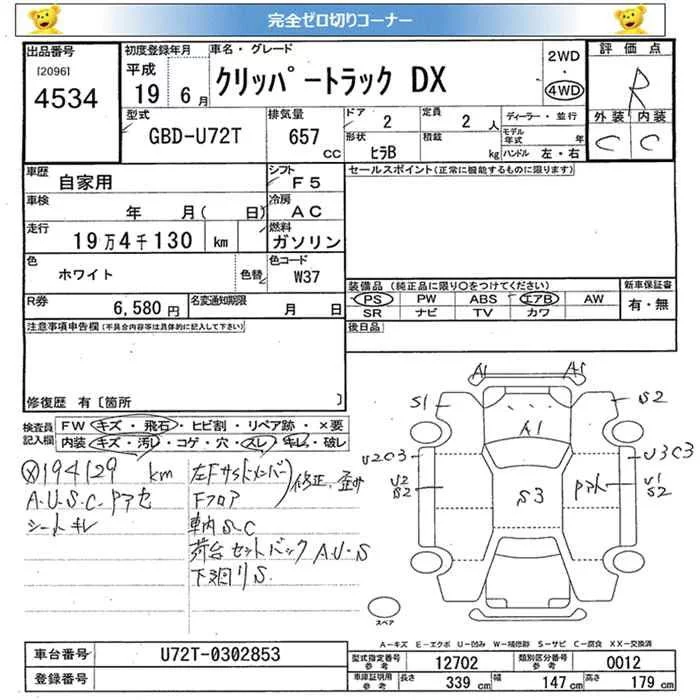 完全ゼロ切りコーナー
出品番号 初度登録年月 車名・グレード 2WD 評価点
[2096] 平成 クリッパートラック DX ・ R
4534 19 6月 4WD
型式 排気量 ドア 2 定員 2人 ディーラー・並行 外装 内装
GBD-U72T 657 CC 形状 ヒラB 積載 kg モデル年式 年 C C
ハンドル 左・右
車歴 自家用 シフト F5 セールスポイント(正常に機能するものに限ります)
車検 年 月( 日) 冷房 AC
走行 19万4千130 km 燃料 ガソリン
色 ホワイト 色替 色コード W37
装備品(純正品に限り○をつけてください) 新車保証書
R券 6,580円 名変通知期限 月 日 PS PW ABS エアB AW 有・無
SR ナビ TV カワ
注意事項申告欄(不具合内容等は具体的に記入して下さい) 後日品
修復歴 有〔箇所 〕
検査員記入欄 FW キズ・飛石・ヒビ割・リペア跡・×要
内装 キズ・汚レ・コゲ・穴・スレ・キレ・破レ
194129 km 左Fサイドメンバー 修正、歪み
A・U・S・C・ドアセ Fフロア
シートキレ 車内S・C
荷台セットバックA・U・S
下廻りS
A1 A1
S1 S2
A1
U2C3 U3C3
U2 S2 S3 U1 S2
スペア
A-キズ E-エクボ U-凹み W-補修跡 S-サビ C-腐食 XX-交換済
車台番号 U72T-0302853 型式指定番号 参考 12702 類別区分番号 参考 0012
登録番号 車庫証明用 参考 長さ 339 cm 幅 147 cm 高さ 179 cm